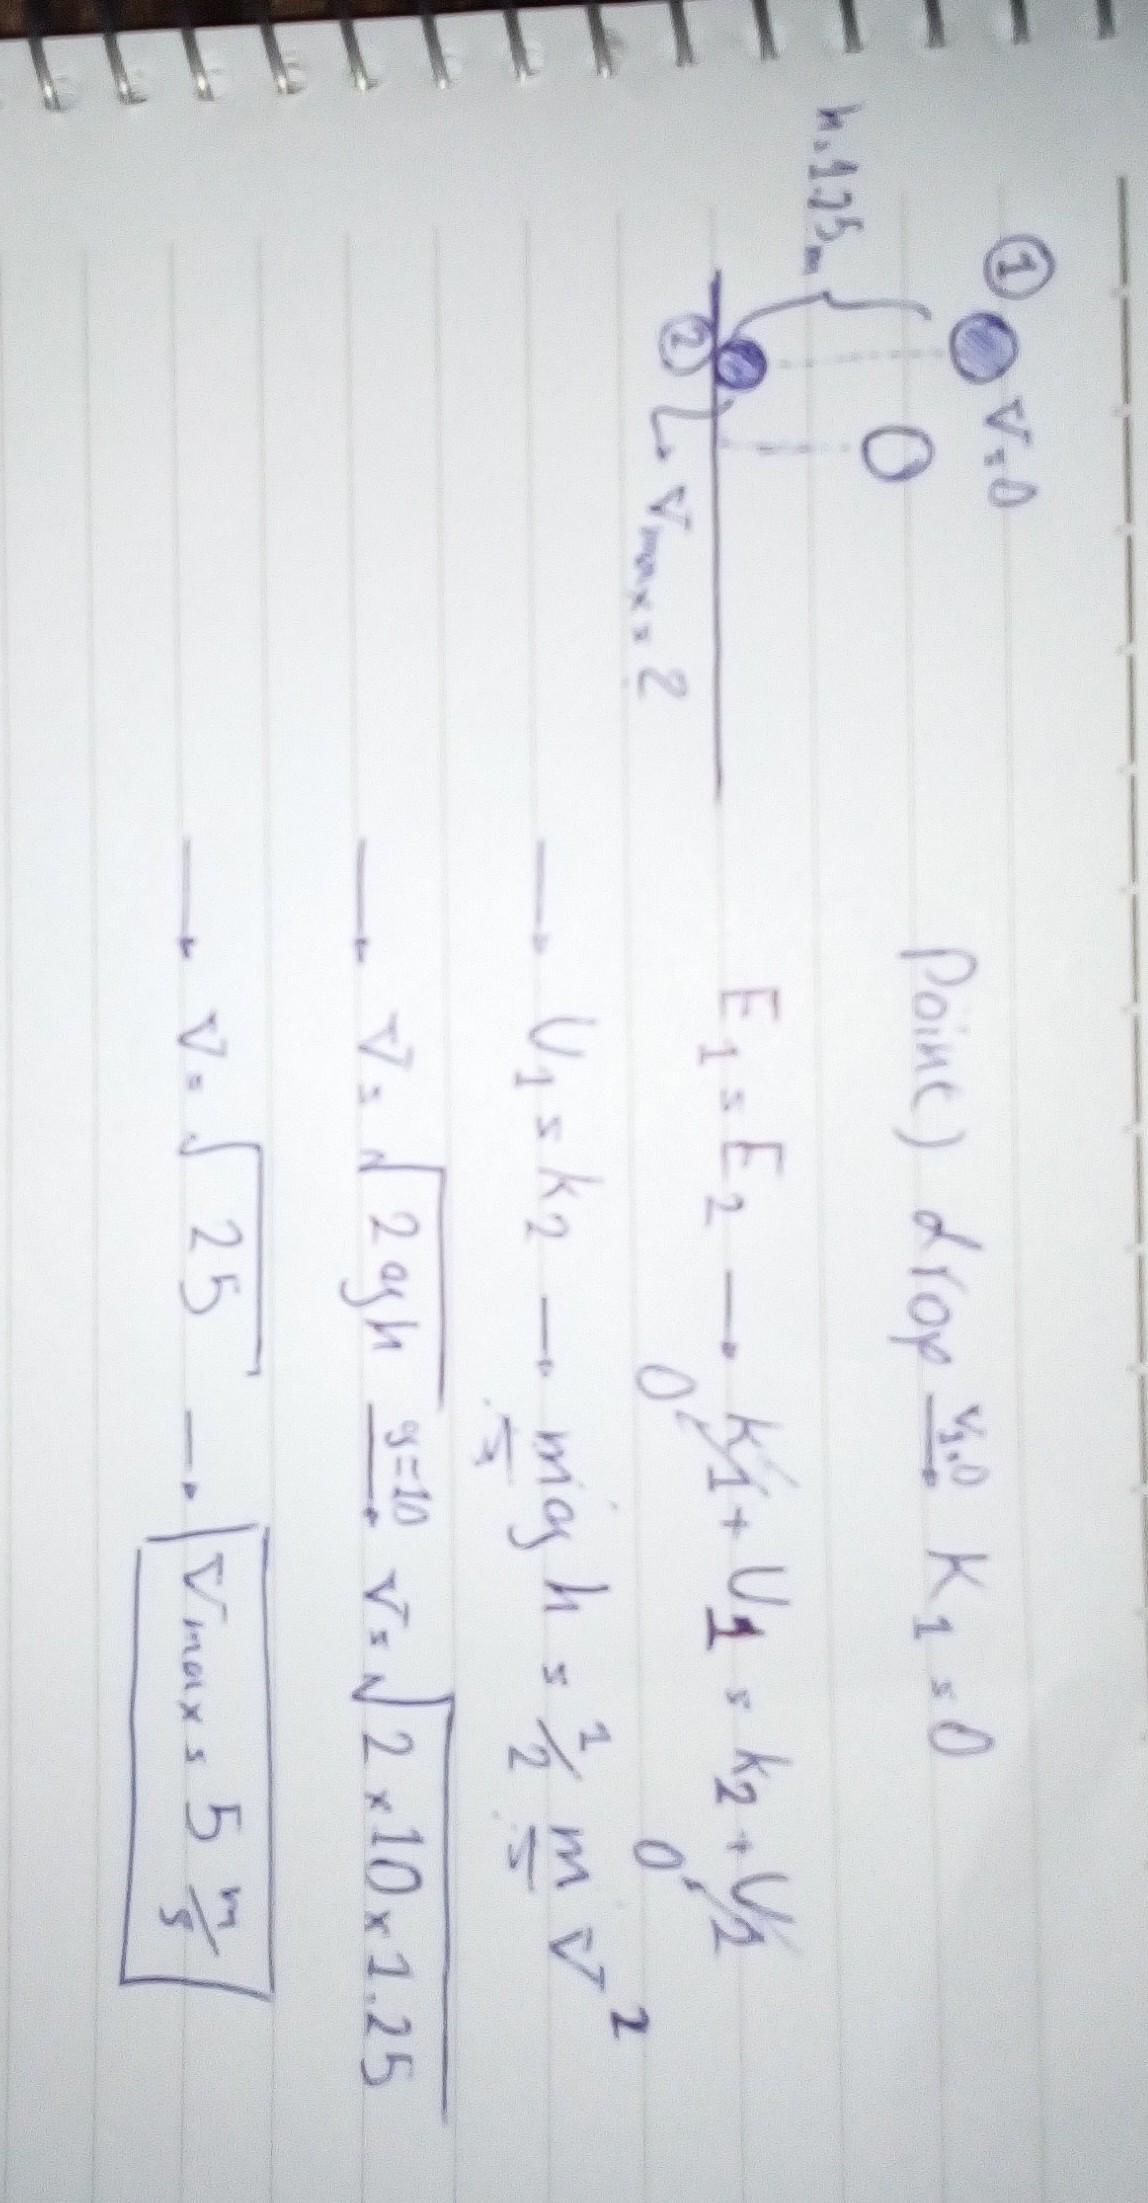 ① V=0
h=1.25m
② → Vmax = ?
Point) drop V1=0 → K1=0
E1=E2 → K1+U1=K2+U2
0 0
→ U1=K2 → mgh = 1/2 mV²
→ V=√2gh g=10 → V=√2×10×1.25
→ V=√25 → Vmax = 5 m/s